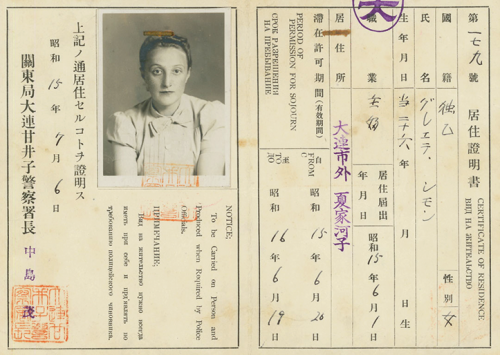 第一七九號
居住證明書
CERTIFICATE OF RESIDENCE
ВИД НА ЖИТЕЛЬСТВО
國籍
獨乙
性別
女
氏名
グレエテ、レモン
生年月日
当二十六年
月
日生
職業
居住届出
年月日
昭和15年6月1日
居住所
大連市外 夏家河子
滞在許可期間(有效期間)
PERIOD OF
PERMISSION FOR SOJOURN
СРОК РАЗРЕШЕНИЯ
НА ПРЕБЫВАНИЕ
自
FROM
С
昭和15年6月20
至
TO
ПО
昭和16年6月19日
NOTICE:
To be Carried on Person and
Produced when Required by Police
Officials.
ПРИМЕЧАНИЕ:
Вид на жительство нужно всегда
иметь при себе и пред'являть по
требованию полицейского чиновника.
上記ノ通居住セルコトヲ證明ス
昭和15年7月6日
關東局大連甘井子警察署長
中島茂